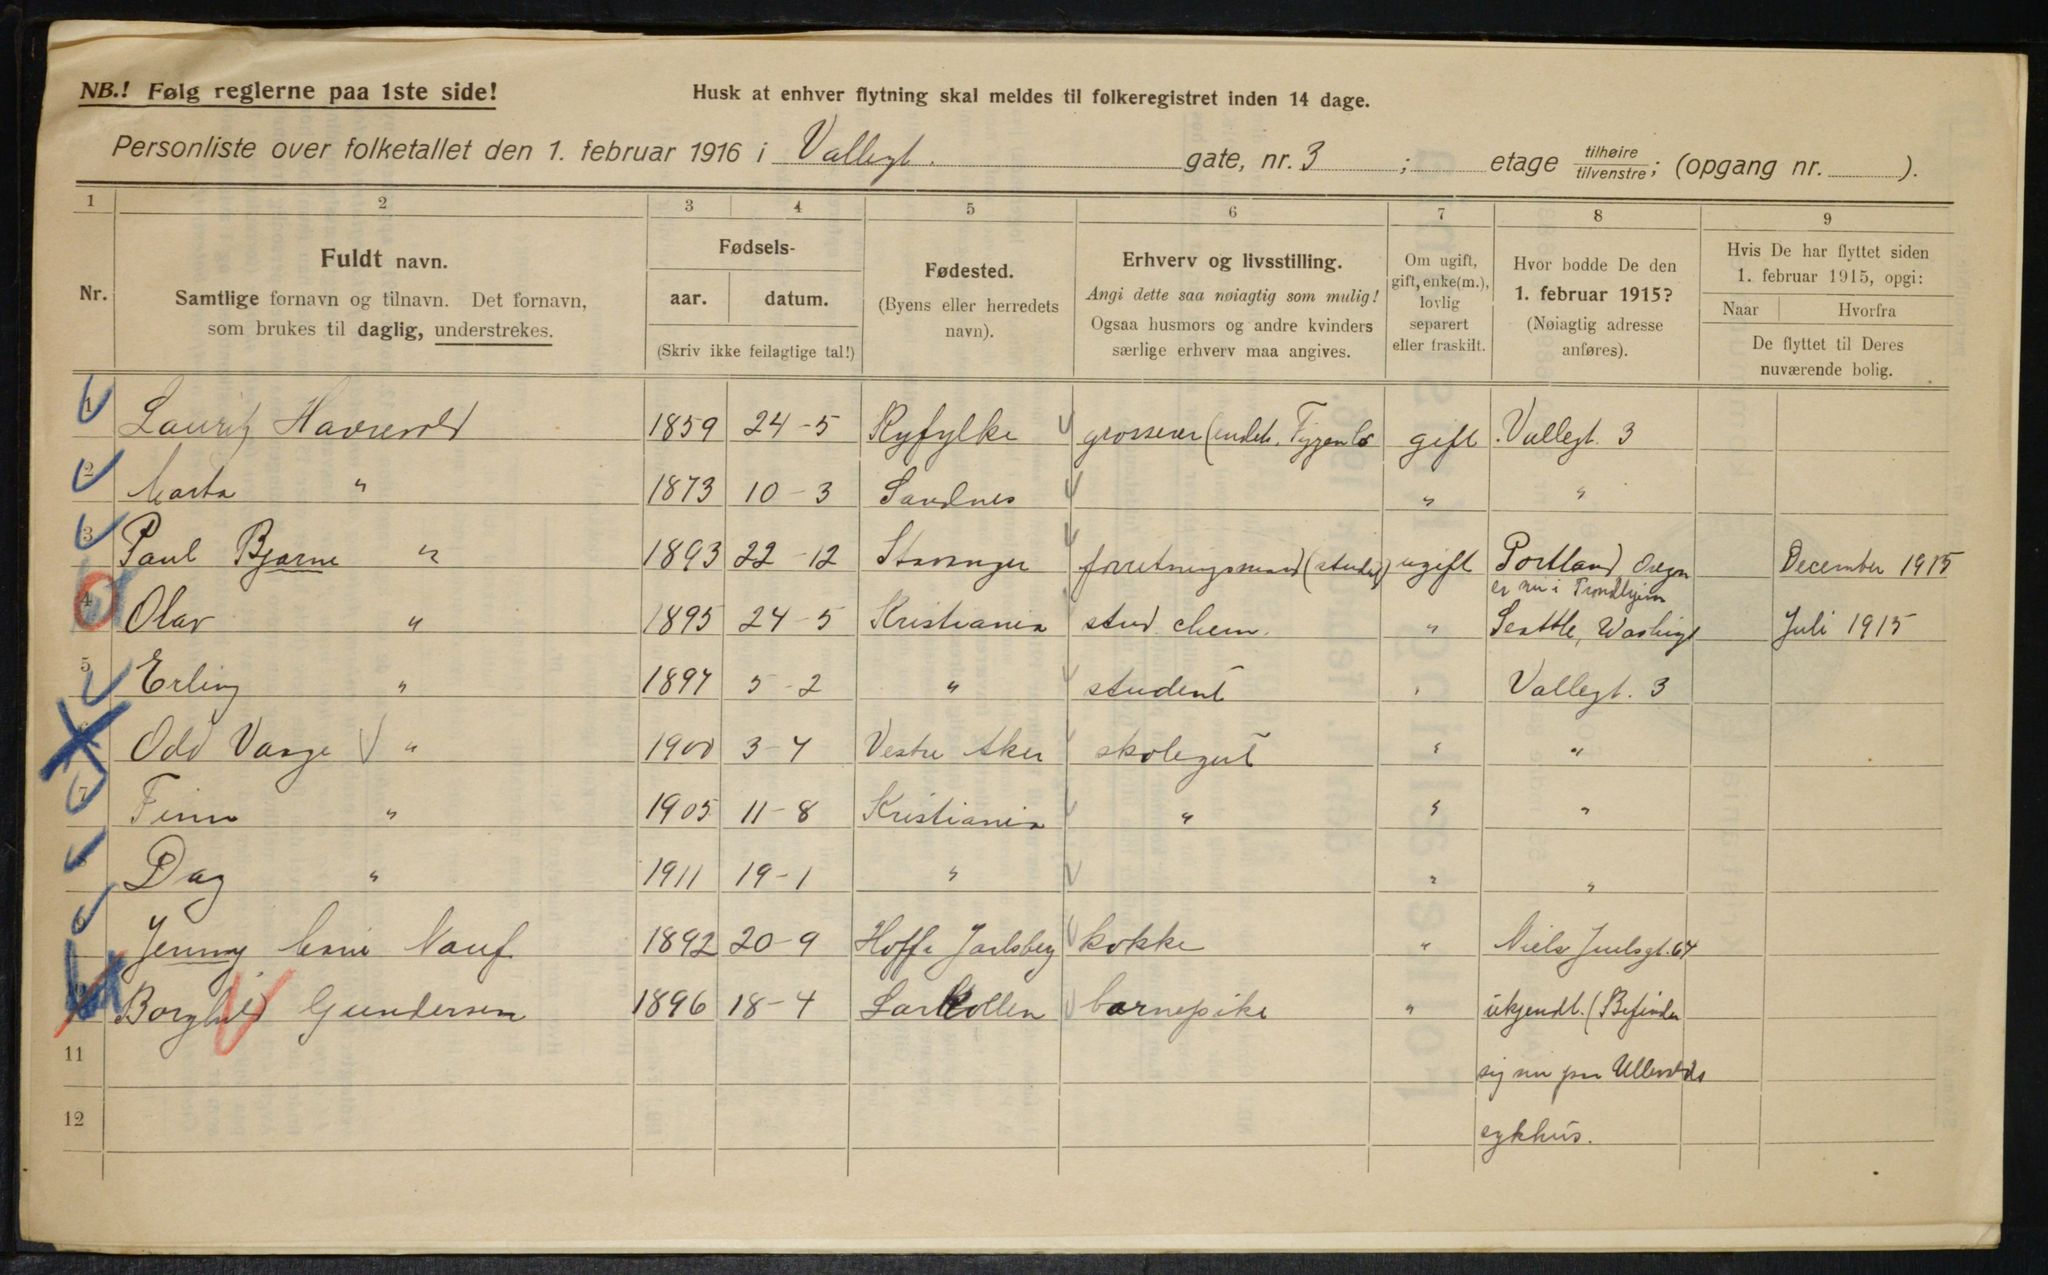 NB.! Følg reglerne paa 1ste side!
Husk at enhver flytning skal meldes til folkeregistret inden 14 dage.
Personliste over folketallet den 1. februar 1916 i Vallegt. gate, nr. 3 ; etage tilhøire tilvenstre ; (opgang nr. ).
1 2 3 4 5 6 7 8 9
Nr.
Fuldt navn.
Samtlige fornavn og tilnavn. Det fornavn,
som brukes til daglig, understrekes.
Fødsels-
aar. datum.
(Skriv ikke feilagtige tal!)
Fødested.
(Byens eller herredets
navn).
Erhverv og livsstilling.
Angi dette saa nøiagtig som mulig!
Ogsaa husmors og andre kvinders
særlige erhverv maa angives.
Om ugift,
gift, enke(m.),
lovlig
separert
eller fraskilt.
Hvor bodde De den
1. februar 1915?
(Nøiagtig adresse
anføres).
Hvis De har flyttet siden
1. februar 1915, opgi:
Naar Hvorfra
De flyttet til Deres
nuværende bolig.
1 Lauritz Havrevold 1859 24-5 Ryfylke grosserer gift Vallegt. 3
2 Marta " 1873 10-3 Sandnes " "
3 Paul Bjarne " 1893 22-12 Stavanger forretningsmand ugift Portland Oregon December 1915
er nu i Trondhjem
4 Olav " 1895 24-5 Kristiania stud chem. " Seattle, Washingt Juli 1915
5 Erling " 1897 5-2 " student " Vallegt. 3
6 Odd Vange " 1900 3-4 Vestre Aker skolegut " "
7 Finn " 1905 11-8 Kristiania " " "
8 Dag " 1911 19-1 " " "
9 Jenny Marie 1892 20-9 Hoff Jarlsberg kokke " Niels Juelsgt. 64
10 Borghild Gundersen 1896 18-4 Larkollen barnepike " ukjendt. (Befinder
11 sig nu paa Ullevolds
12 sykhus.